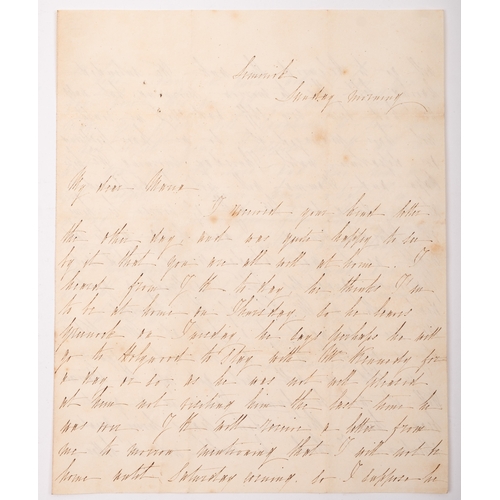 Limerick
Sunday morning
My dear Mama
I received your kind letter
the other day and was quite happy to see
by it that you are all well at home. I
heard from to day, he thinks I am
to be at home on Thursday, so he leaves
Greenock on Tuesday he says perhaps he will
go to Holywood to stay with Mr Kennedy for
a day or so, as he was not well pleased
at him not visiting him the last time he
was over. will receive a letter from
me to morrow mentioning that I will not be
home until Saturday evening, so I suppose he